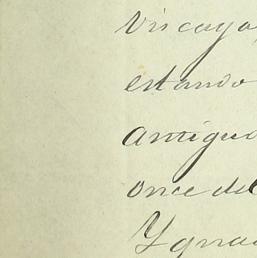 Viscaya,
estando
antiguo
once del
Ygnac